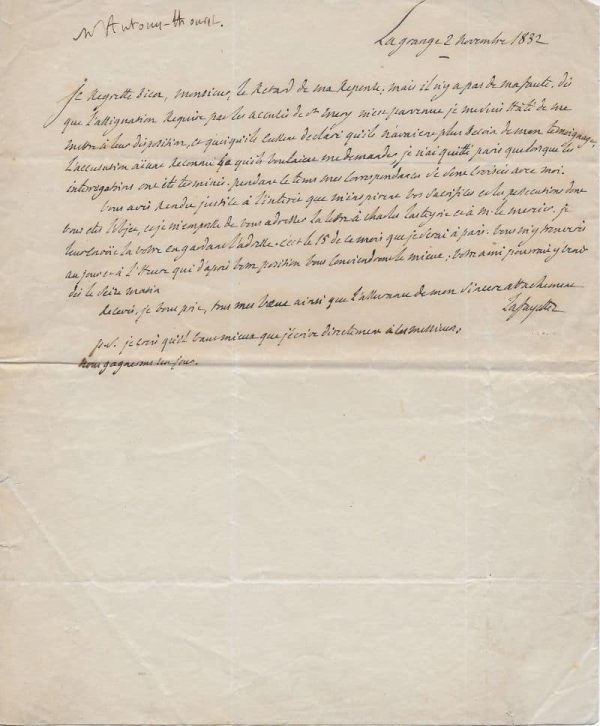 Mr Antony-Thouret.
Lagrange 2 Novembre 1832
Je Regrette bien, monsieur, le Retard de ma Reponse, mais il n'y a pas de ma faute. dès
que l'assignation Requise par les accusés de St mery m'est parvenue je me suis hâté de me
mettre à leur disposition, et quoiqu'ils eussent declaré qu'ils n'avaient plus besoin de mon temoignage,
l'accusation aiant Reconnu qu'ils voulaient me demander, je n'ai quitté paris que lorsque les
interogatoires ont été terminés. pendant ce tems mes Correspondances se sont croisées avec moi.
Vous avés Rendu justice à l'interêt que m'inspirent vos sacrifices et les persecutions dont
vous etes l'objet, et je m'empresse de vous adresser la lettre à charles Lasteyrie et à M. le mercier. je
leur envoie la votre en gardant l'adresse. c'est le 15 de ce mois que je serai à paris. Vous m'y trouverés
au jour et à l'heure qui d'après votre position vous conviendront le mieux; votre ami pourrait y venir
dès le seize matin
Recevés, je vous prie, tous mes voeux ainsi que l'assurance de mon sincere attachement
Lafayette
p.s. je crois qu'il vaut mieux que j'écrive directement à ces messieurs,
nous gagnerons un jour.